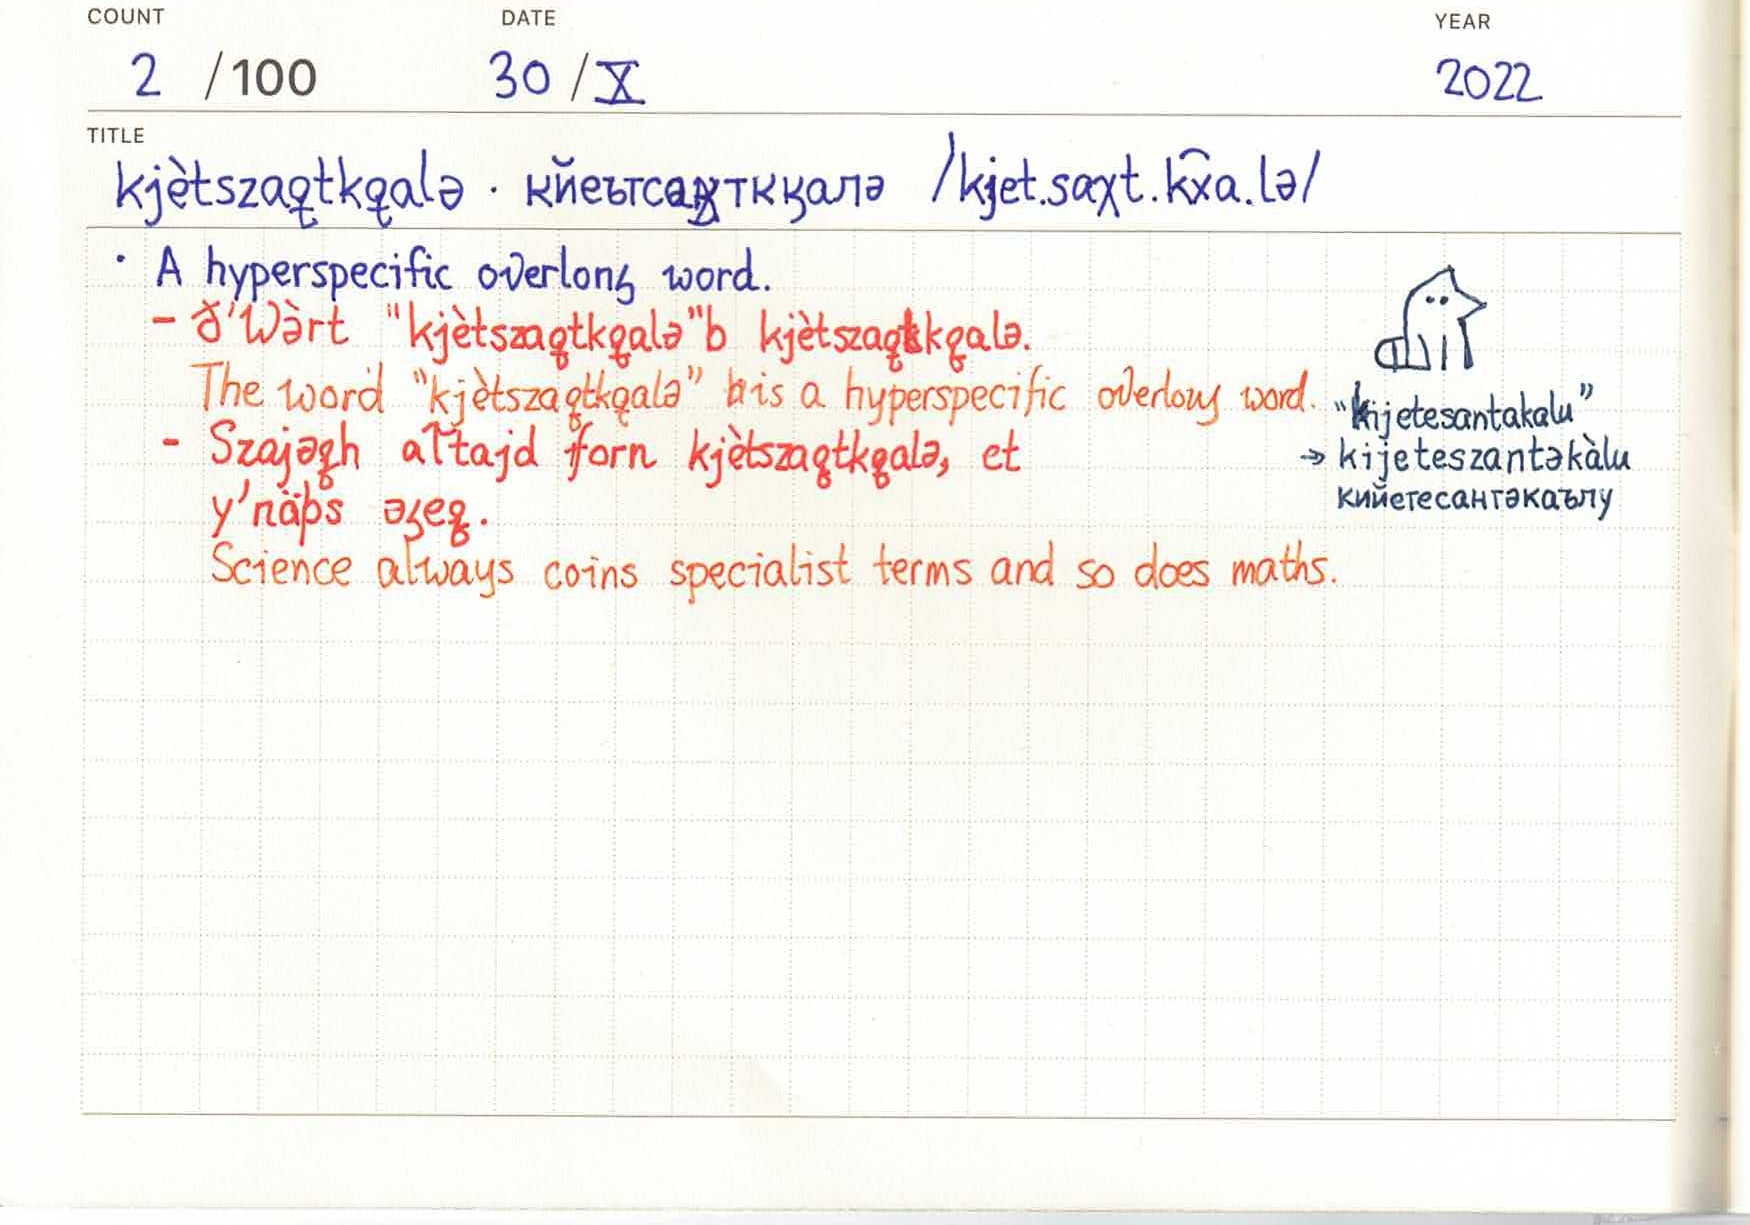 COUNT DATE YEAR
2 /100 30 / X 2022
TITLE
kjètszaq̱tkq̱alə · кйеътсаӽткӄалə /kjet.saχt.k͡xa.lə/
· A hyperspecific overlong word.
- ð'Wàrt "kjètszaq̱tkq̱alə"b kjètszaq̱tkq̱alə.
The word "kjètszaq̱tkq̱alə" is a hyperspecific overlong word.
- Szajəq̱h attajd forn kjètszaq̱tkq̱alə, et
y'näþs əʒeq̱.
Science always coins specialist terms and so does maths.
"kijetesantakalu"
→ kijeteszantəkàlu
кийетесантəкаълу